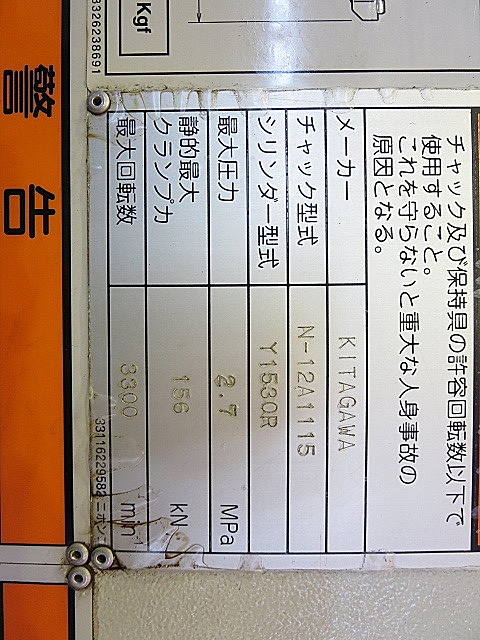 Kgf
3326238691
警告
チャック及び保持具の許容回転数以下で
使用すること。
これを守らないと重大な人身事故の
原因となる。
メーカー KITAGAWA
チャック型式 N-12A1115
シリンダー型式 Y1530R
最大圧力 2.7 MPa
静的最大
クランプ力 156 kN
最大回転数 3300 min⁻¹
33116229582 ニホンゴ